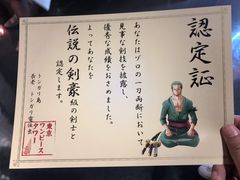 認定証
あなたはゾロの一刀両断において
見事な剣技を披露し、
優秀な成績をおさめました。
よってあなたを
伝説の剣豪級の剣士と
認定します。
トンガリ島
長老 トンガリ
東京
ワンピース
タワー